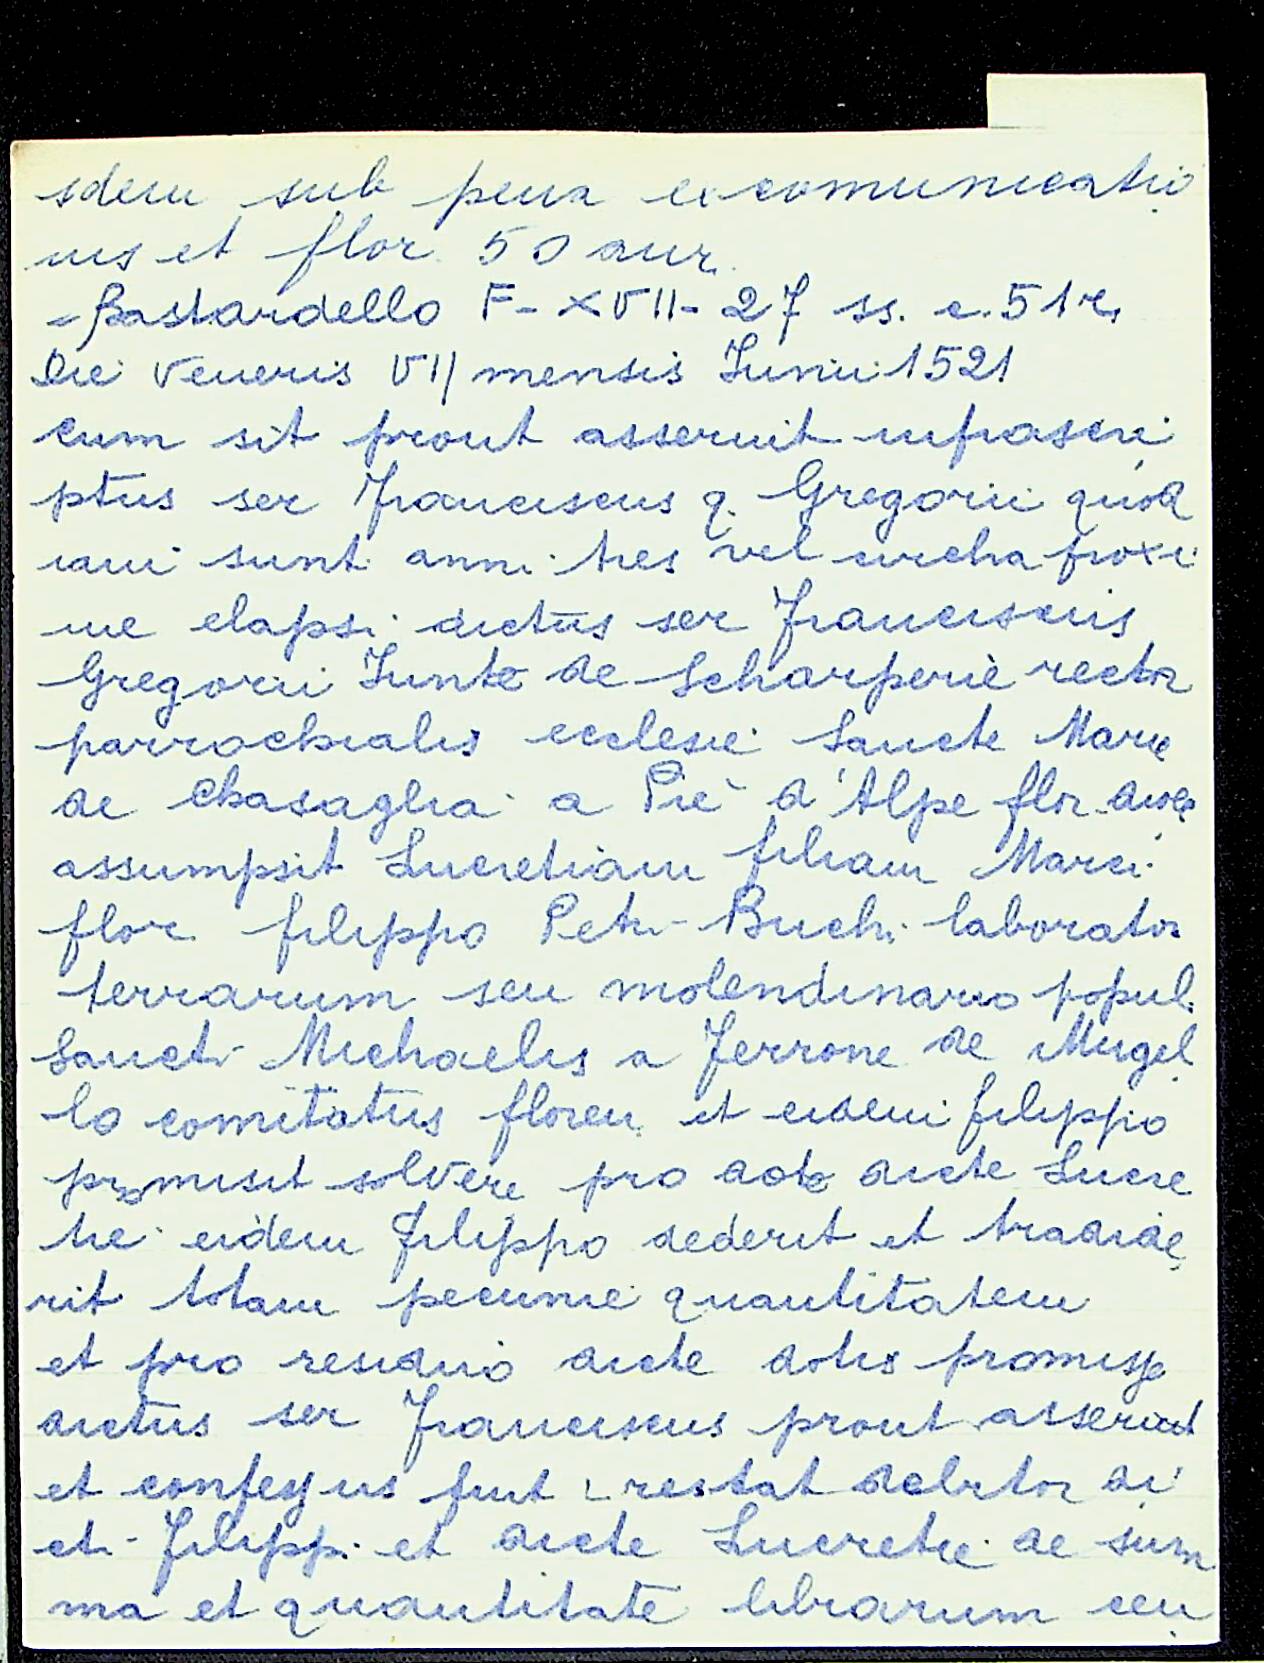 sdem sub pena excomunicatio
nis et flor. 50 aur.
- Bastardello F- XVII- 27 ss. c. 51 r.
Die Veneris VII mensis Junii 1521
cum sit prout asseruit infrascri
ptus ser Franciscus q. Gregorii quod
iam sunt anni tres vel circha proxi
me elapsi dictus ser Franciscus
Gregorii Junte de Scharperie rector
parrochialis ecclesie Sancte Marie
de Chasaglia a Piè d'Alpe flor. dioc.
assumpsit Lucretiam filiam Marci
flor. filippo Petri Buchi laborator
terrarum seu molendinario popul.
Sancti Michaelis a Ferrone de Mugel
lo comitatus floren. et eidem filippo
promisit solvere pro dote dicte Lucre
tie eidem Filippo dederit et tradide
rit totam pecunie quantitatem
et pro residuo dicte dotis promisse
dictus ser Franciscus prout asseruit
et confessus fuit restat debitor di
cti Filippi et dicte Lucretie de sum
ma et quantitate librarum cen